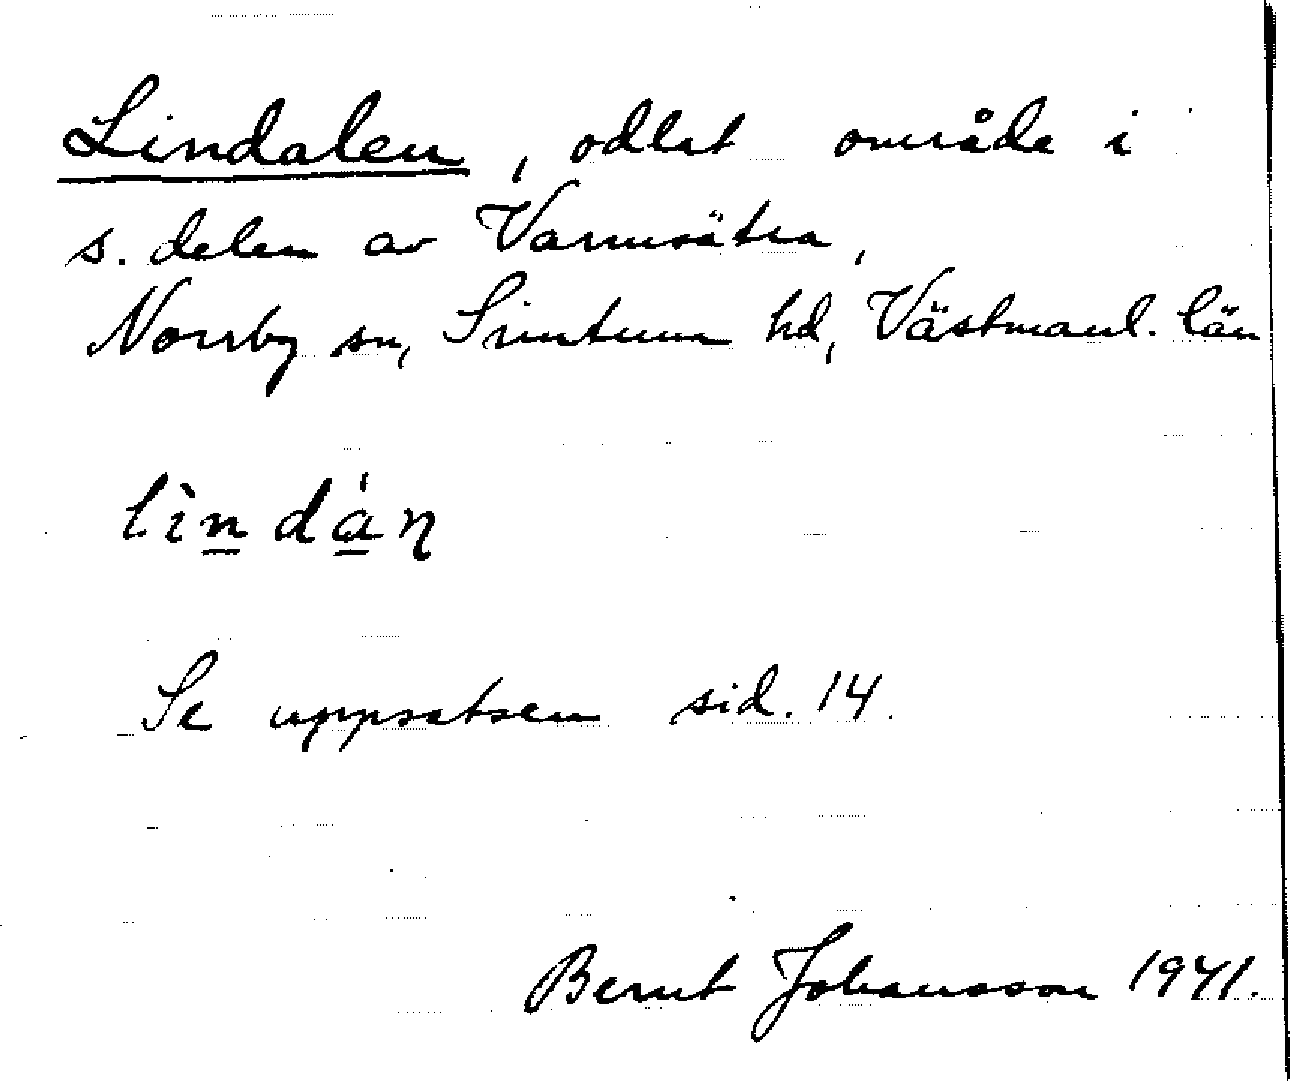 Lindalen, odlat område i
s. delen av Varmsätra,
Norrby sn, Simtuna hd, Västmanl. län
lìndán
Se uppsatsen sid. 14.
Bernt Johansson 1941.